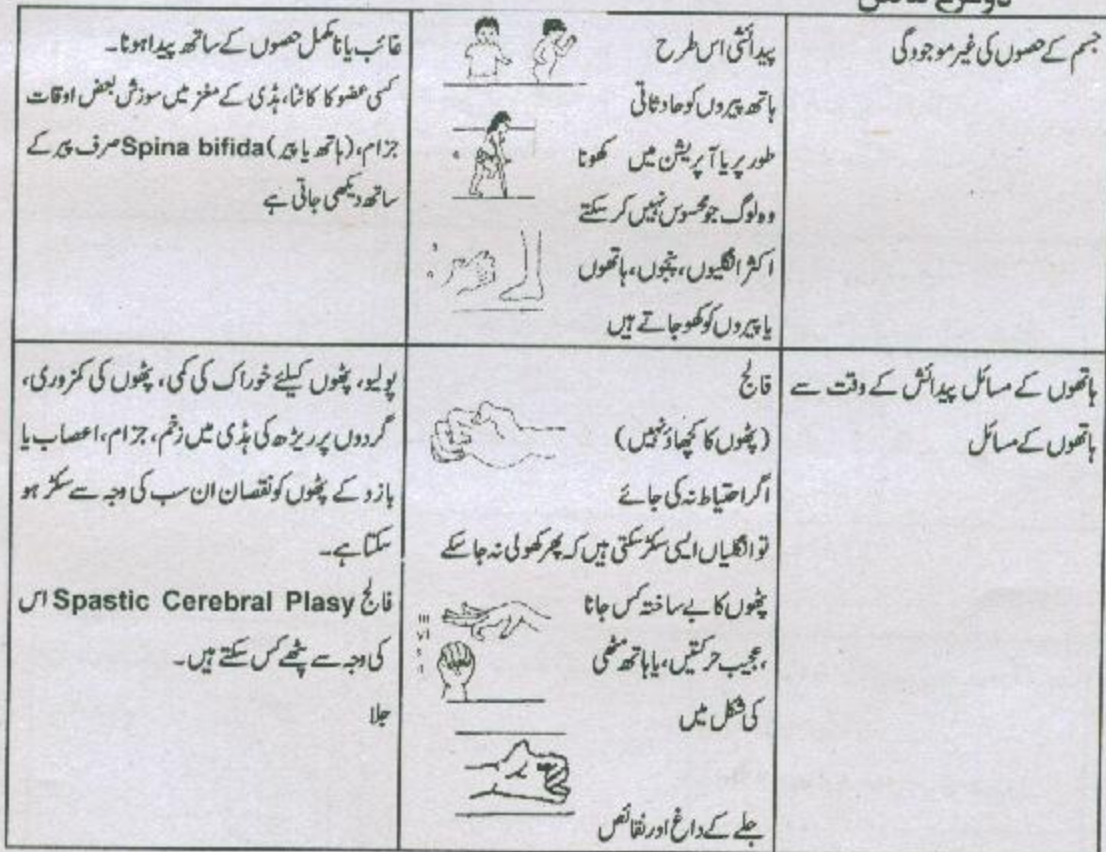 دوسرے نقائص
جسم کے حصوں کی غیر موجودگی
پیدائشی اس طرح
ہاتھ پیروں کو حادثاتی
طور پر یا آپریشن میں کھونا
وہ لوگ جو محسوس نہیں کر سکتے
اکثر انگلیوں، پنجوں، ہاتھوں
یا پیروں کو کھو جاتے ہیں
غائب یا نامکمل حصوں کے ساتھ پیدا ہونا۔
کسی عضو کا کاٹنا، ہڈی کے مغز میں سوزش بعض اوقات
جزام، (ہاتھ یا پیر) Spina bifida صرف پیر کے
ساتھ دیکھی جاتی ہے
ہاتھوں کے مسائل پیدائش کے وقت سے
ہاتھوں کے مسائل
فالج
(پٹھوں کا کھچاؤ نہیں)
اگر احتیاط نہ کی جائے
تو انگلیاں ایسی سکڑ سکتی ہیں کہ پھر کھولی نہ جا سکے
پٹھوں کا بے ساختہ کس جانا
،عجیب حرکتیں، یا ہاتھ مٹھی
کی شکل میں
جلے کے داغ اور نقائص
پولیو، پٹھوں کیلئے خوراک کی کمی، پٹھوں کی کمزوری،
گردوں پر ریڑھ کی ہڈی میں زخم، جزام، اعصاب یا
بازو کے پٹھوں کو نقصان ان سب کی وجہ سے سکڑ ہو
سکتا ہے۔
فالج Spastic Cerebral Plasy اس
کی وجہ سے پٹھے کس سکتے ہیں۔
جلا